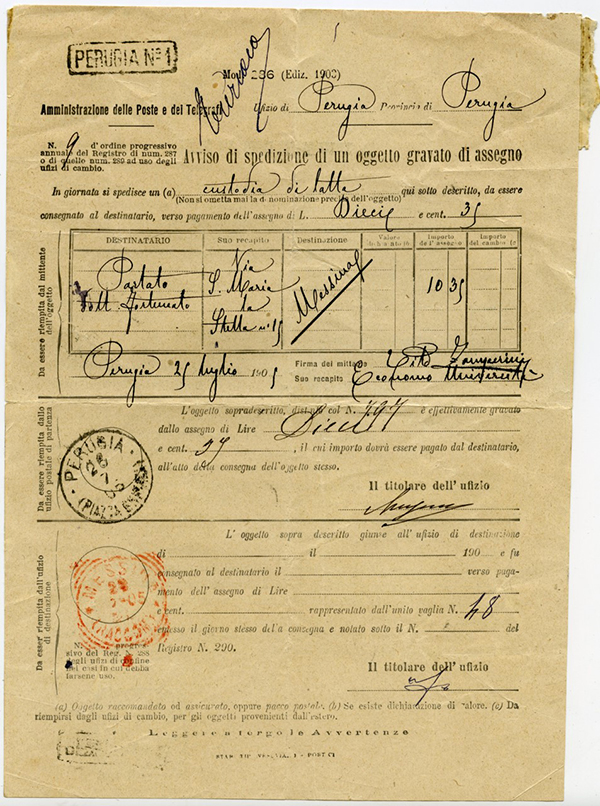 PERUGIA Nº 1
Mod. 236 (Ediz. 1903)
Amministrazione delle Poste e dei Telegrafi
Ufizio di Perugia Provincia di Perugia
N. 9 d'ordine progressivo
annuale del Registro di num. 287
o di quelle num. 289 ad uso degli
ufizi di cambio.
Avviso di spedizione di un oggetto gravato di assegno
In giornata si spedisce un (a) custodia di latta qui sotto descritto, da essere
(Non si ometta mai la denominazione precisa dell'oggetto)
consegnato al destinatario, verso pagamento dell'assegno di L. Dieci e cent. 35
Da essere riempita dal mittente dell'oggetto
DESTINATARIO Suo recapito Destinazione Valore Importo dell'assegno Importo del cambio (c)
Dott. Fortunato
Via
S. Maria
la
Stella nº 15
Messina
10 35
Perugia 25 luglio 1905
Firma del mittente Tito
Suo recapito Economo Università
Da essere riempita dallo ufizio postale di partenza
L'oggetto sopradescritto, distinto col N. 797 è effettivamente gravato
dallo assegno di Lire Dieci
e cent. 35, il cui importo dovrà essere pagato dal destinatario,
all'atto della consegna dell'oggetto stesso.
Il titolare dell'ufizio
PERUGIA
7
05
Da essere riempita dall'ufizio di destinazione
L'oggetto sopra descritto giunse all'ufizio di destinazione
di il 190 e fu
consegnato al destinatario il verso paga-
mento dell'assegno di Lire
e cent. rappresentato dall'unito vaglia N. 48
emesso il giorno stesso della consegna e notato sotto il N. del
Registro N. 290.
MESSINA
29
7-05
N. progres-
sivo del Reg. N. 288
degli ufizi di ordine
nei casi in cui debba
farsene uso.
Il titolare dell'ufizio
(a) Oggetto raccomandato od assicurato, oppure pacco postale. (b) Se esiste dichiarazione di valore. (c) Da
riempirsi dagli ufizi di cambio, per gli oggetti provenienti dall'estero.
Leggere a tergo le Avvertenze